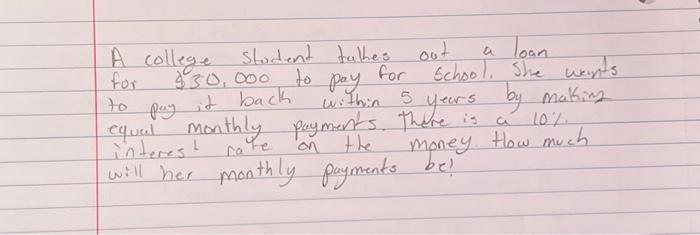 A college student talkes out a loan
for $30,000 to pay for School. She wants
to pay it back within 5 years by making
equal monthly payments. There is a 10%
interest rate on the money. How much
will her monthly payments be?